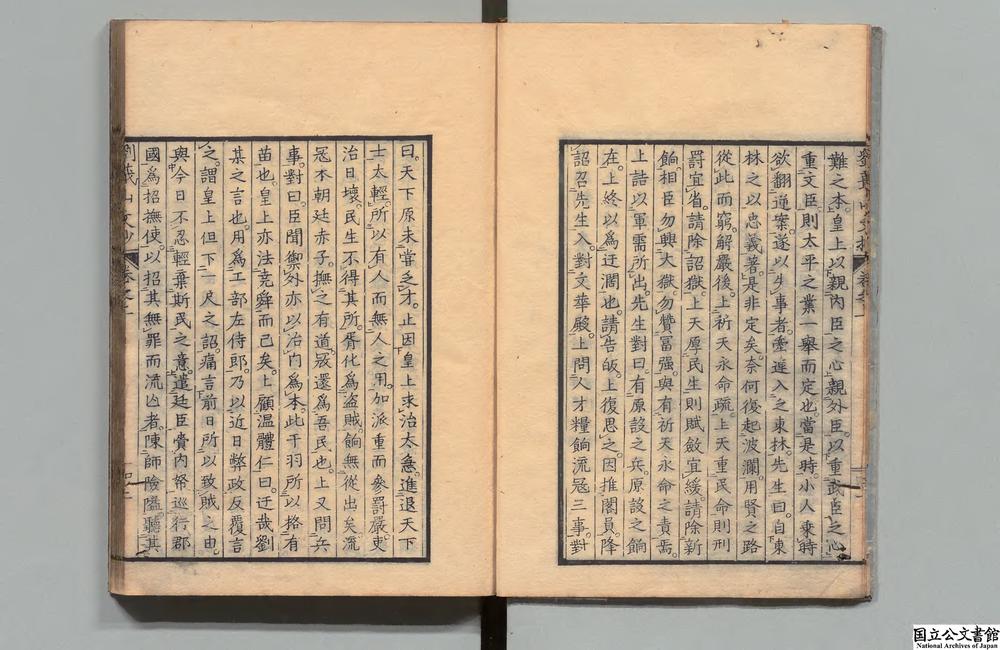 難之本皇上以親內臣之心親外臣以重武臣之心
重文臣則太平之業一舉而定也當是時小人乘時
欲翻逆案遂以失事者牽連入之東林先生曰自東
林之以忠義著是非定矣奈何復起波瀾用賢之路
從此而窮解嚴後上祈天永命疏上天重民命則刑
罰宜省請除詔獄上天厚民生則賦斂宜緩請除新
餉相臣勿興大獄勿贊富强與有祈天永命之責焉
上詰以軍需所出先生對曰有原設之兵原設之餉
在上終以爲迂濶也請告皈上復思之因推閣員降
詔召先生入對文華殿上問人才糧餉流寇三事對
曰天下原未嘗乏才止因皇上求治太急進退天下
士太輕所以有人而無人之用加派重而參罰嚴吏
治日壞民生不得其所胥化爲盜賊餉無從出矣流
寇本朝廷赤子撫之有道寇還爲吾民也上又問兵
事對曰臣聞禦外亦以治內爲本此干羽所以格有
苗也皇上亦法堯舜而已矣上顧溫體仁曰迂哉劉
某之言也用爲工部左侍郎乃以近日弊政反覆言
之謂皇上但下一尺之詔痛言前日所以致賊之由
與今日不忍輕棄斯民之意遣廷臣賫內帑巡行郡
國爲招撫使以招其無罪而流亡者陳師險隘聽其
国立公文書館
National Archives of Japan